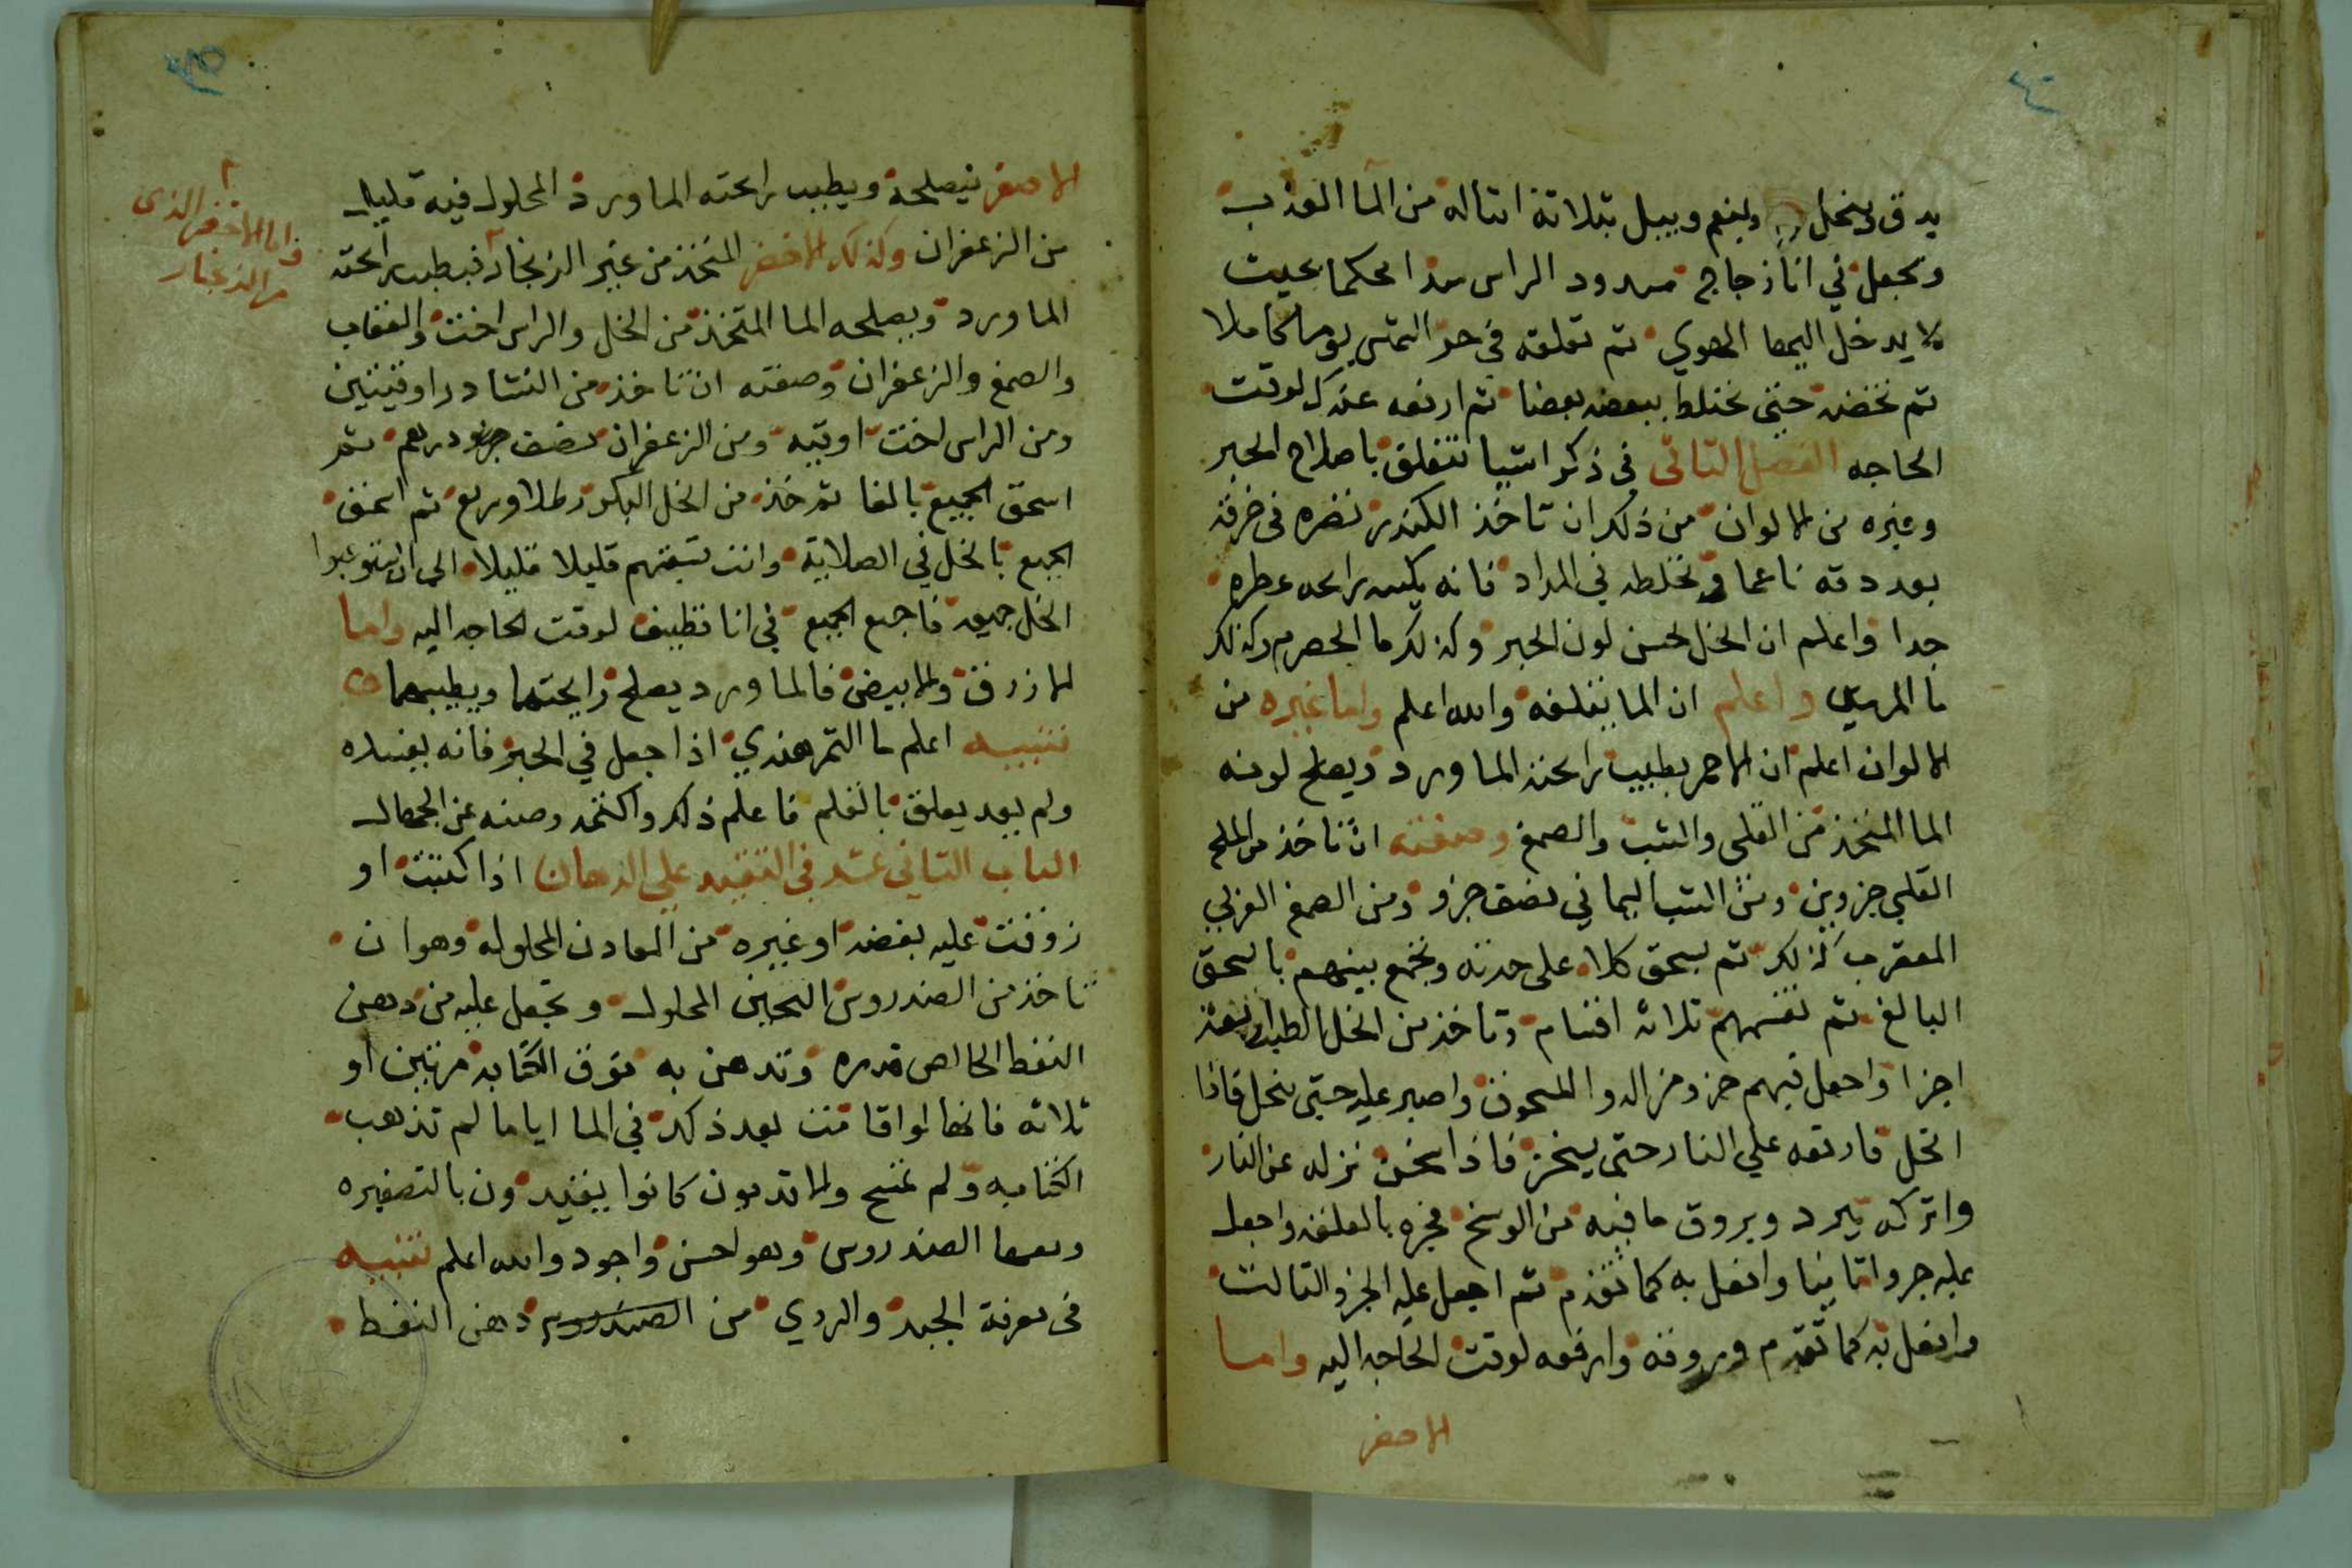 يدق وينخل وينعم ويبل بثلاثة امثاله من المآ العذب
وتجعل في انآ زجاج مسدود الراس سدا محكما بحيث
لا يدخل اليها الهوي ثم تعلقه في حر الشمس يوما كاملا
ثم تخضه حتي تختلط ببعضه بعضا ثم ارفعه عندك لوقت
الحاجه الفصل الثاني في ذكر اشيا تتعلق باصلاح الحبر
وغيره من الالوان من ذلك ان تاخذ الكندر تضره في خرقه
بعد دقه ناعما وتخلطه في المداد فانه يكسه رايحه عطره
جدا واعلم ان الخل يحسن لون الحبر وكذلك ما الحصرم وكذلك
ما المرسين واعلم ان الما يغلفه والله اعلم واما غيره من
الالوان اعلم ان الاحمر يطيب رايحته الماورد ويصلح لونه
الما المتخذ من القلي والشب والصمغ وصفته ان تاخذ من الملح
القلي جزوين ومن الشب اليماني نصف جزو ومن الصمغ العربي
المعقرب كذلك ثم يسحق كلا على حدته وتجمع بينهم بالسحق
البالغ ثم تقسمهم ثلاثه اقسام وتاخذ من الخل الطيب اربعة
اجزا واجعل فيهم جزو من الدوا المسحوق واصبر عليه حتي ينحل فاذا
انحل فارفعه علي النار حتى يسخن فاذا سخن نزله عن النار
واتركه يبرد ويروق ما فيه من الوسخ فجره بالعلقه واجعل
عليه جزوا ثانيا وافعل به كما تقدم ثم اجعل عليه الجزو الثالث
وافعل به كما تقدم وروقه وارفعه لوقت الحاجه اليه واما
الاصفر
الاصفر فيصلحه ويطيب رايحته الماورد المحلول فيه قليل
من الزعفران وكذلك الاخضر المتخذ من غير الزنجار فيطيب رايحته
الماورد ويصلحه الما المتخذ من الخل والراس اخت والعقاب
والصمغ والزعفران وصفته ان تاخذ من النشادر اوقيتين
ومن الراس اخت اوقيه ومن الزعفران نصف درهم ثم
اسحق الجميع بالغا ثم خذ من الخل البكر رطلا وربع ثم اسحق
الجميع بالخل في الصلاية وانت تسقيهم قليلا قليلا الي ان يستوعبوا
الخل جميعه فاجمع الجميع في انا نظيف لوقت الحاجه اليه واما
الازرق والابيض فالماورد يصلح رايحتهما ويطيبهما
تنبيه اعلم ما التمر هندي اذا جعل في الحبر فانه يفسده
ولم يعد يعلق بالقلم فاعلم ذلك واكتمه وصنه عن الجهال
الباب الثاني عشر في التقييد علي الدهان اذا كتبت او
زوقت عليه بفضه او غيره من المعادن المحلوله وهو ان
تاخذ من الصندروس المحلول وتجعل عليه من دهن
النفط الخالص قدره وتدهن به فوق الكتابه مرتين او
ثلاثه فانها لو اقامت بعد ذلك في الما اياما لم تذهب
الكتابه ولم تمسح والاقدمون كانوا يقيدون بالتصفيره
وبعدها الصندروس وهو احسن واجود والله اعلم تنبيه
في معرفة الجيد والردي من دهن النفط
واما الاخضر الذي
من الزنجار